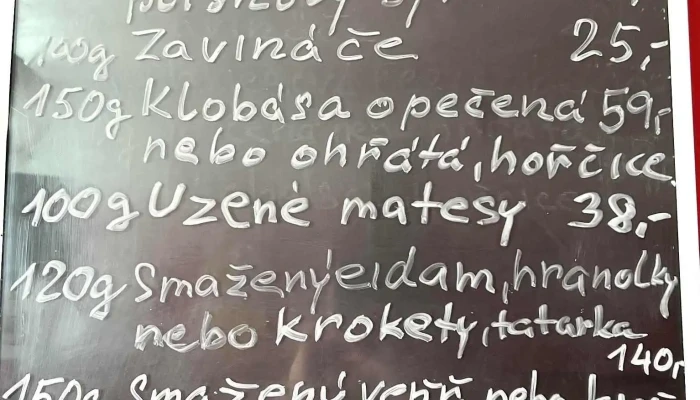 100g Zavináče 25,-
150g Klobása opečená 59,-
nebo ohřátá, hořčice
100g Uzené matesy 38,-
120g Smažený eidam, hranolky
nebo krokety, tatarka
140,-
150g Smažený vepř. nebo